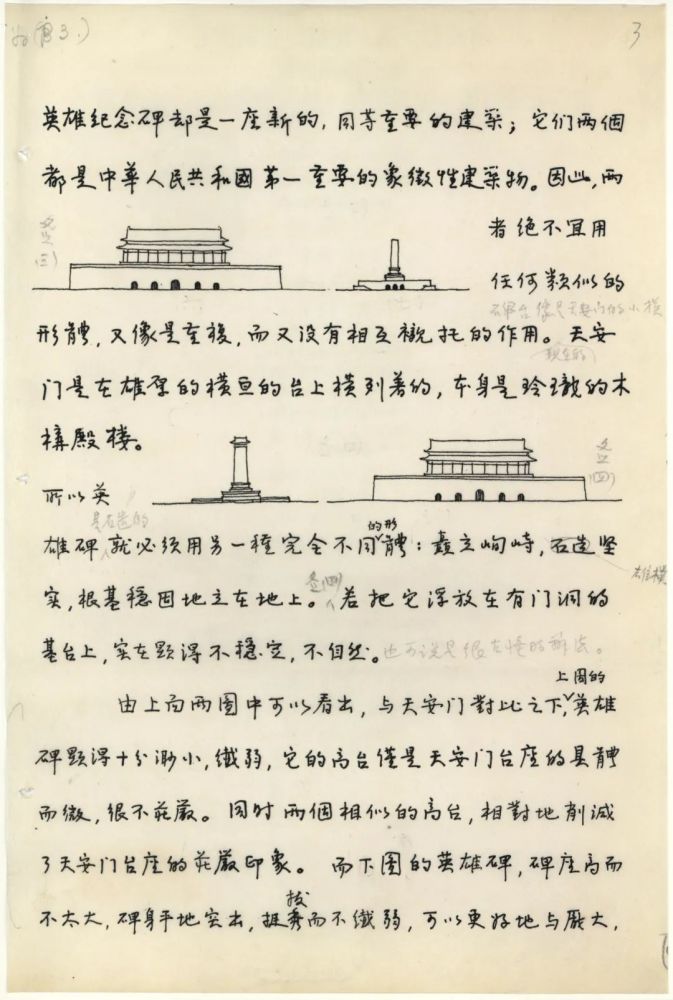 3
英雄纪念碑却是一座新的，同等重要的建築；它们两個
都是中華人民共和國第一重要的象徵性建築物。因此，两
者绝不宜用
任何類似的
形體，又像是重複，而又没有相互襯托的作用。天安
门是在雄厚的横亘的台上横列着的，本身是玲瓏的木
構殿楼。
所以英
的形
雄碑就必须用另一種完全不同體：矗立峋峙，石造坚
实，根基穩固地立在地上。若把它浮放在有门洞的
基台上，实在顕得不穩定，不自然。
上图的
由上面两图中可以看出，与天安门對比之下，英雄
碑顕得十分渺小，纖弱，它的高台僅是天安门台座的具體
而微，很不莊嚴。同时两個相似的高台，相對地削減
了天安门台座的莊嚴印象。而下图的英雄碑，碑座高而
拔
不太大，碑身平地突出，挺而不纖弱，可以更好地与厖大，